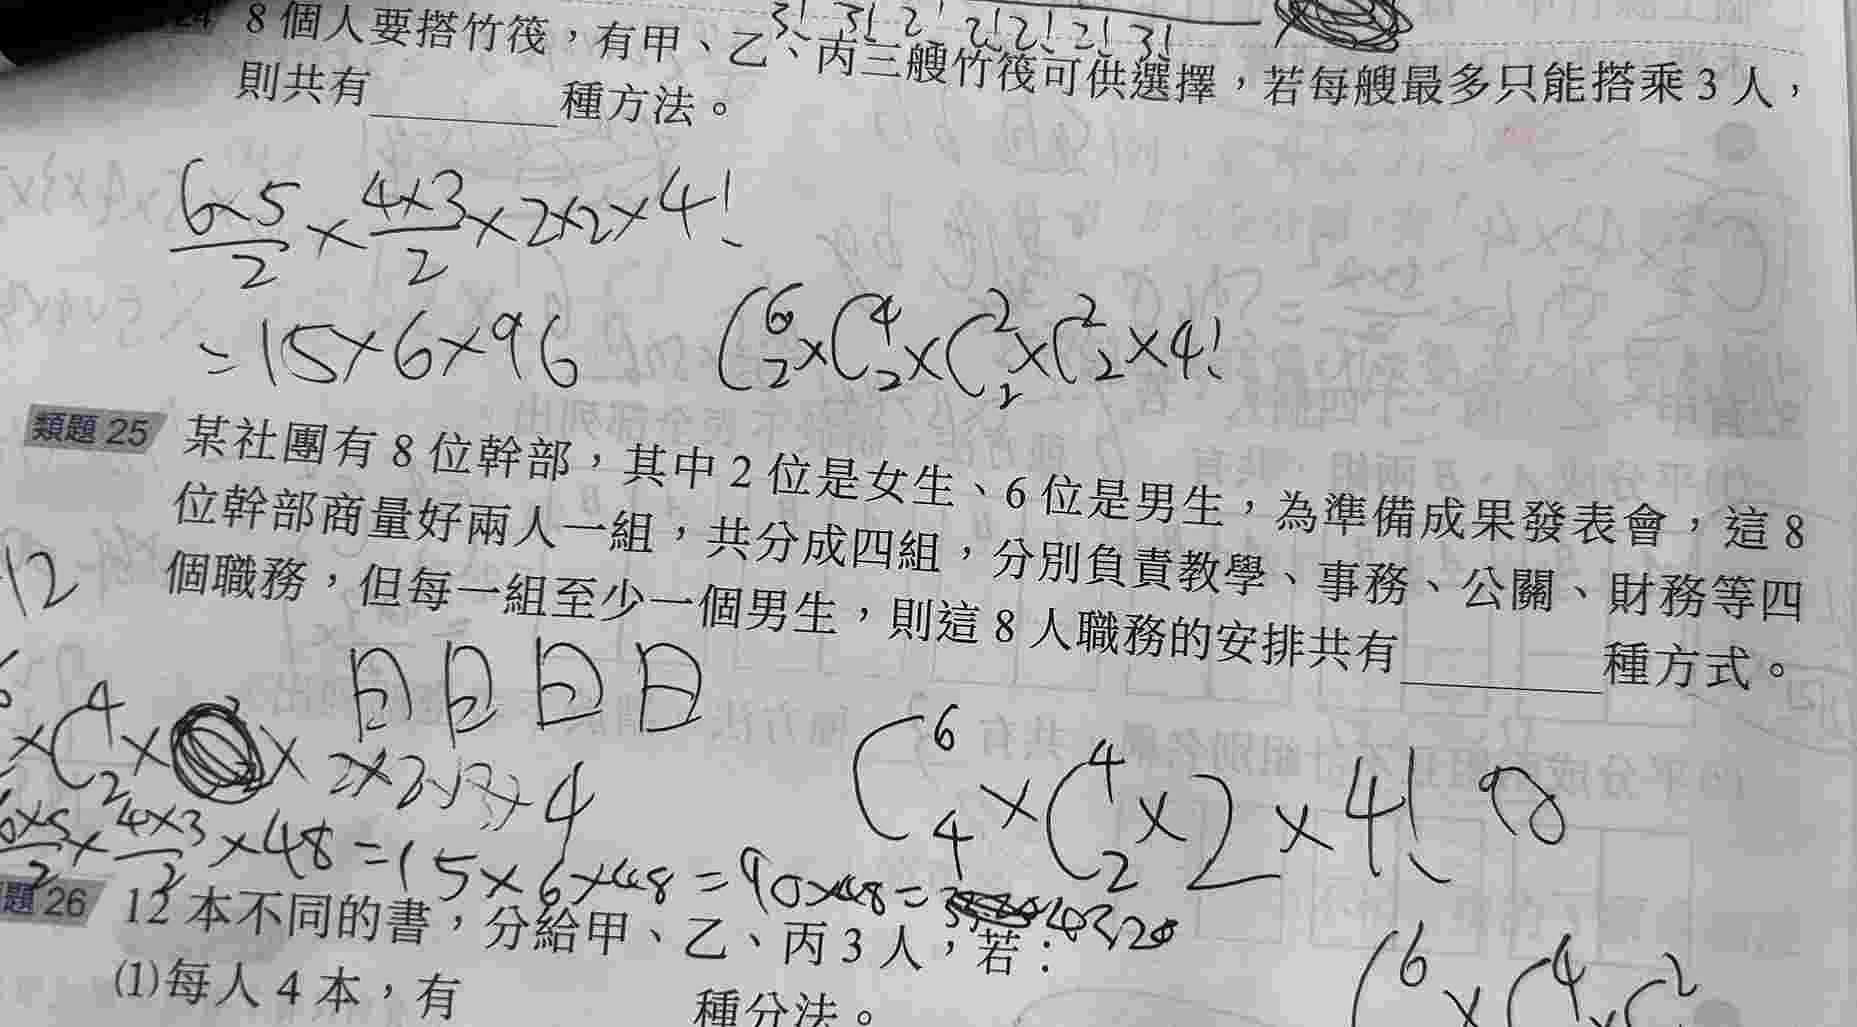 3! 3! 2! 2! 2! 2! 3!
24 8個人要搭竹筏，有甲、乙、丙三艘竹筏可供選擇，若每艘最多只能搭乘3人，
則共有______種方法。
6×5/2 × 4×3/2 × 2×2 × 4!
= 15×6×96
C⁶₂ × C⁴₂ × C²₂ × C²₂ × 4!
類題 25 某社團有8位幹部，其中2位是女生、6位是男生，為準備成果發表會，這8
位幹部商量好兩人一組，共分成四組，分別負責教學、事務、公關、財務等四
個職務，但每一組至少一個男生，則這8人職務的安排共有______種方式。
12
×C⁴₂×
C⁶₄ × C⁴₂ × 2 × 4!
6×5/2 × 4×3/2 × 48 = 15×6×48 = 90×48 =
題 26 12本不同的書，分給甲、乙、丙3人，若：
⑴每人4本，有 種分法。
C⁶ × C⁴ × C²